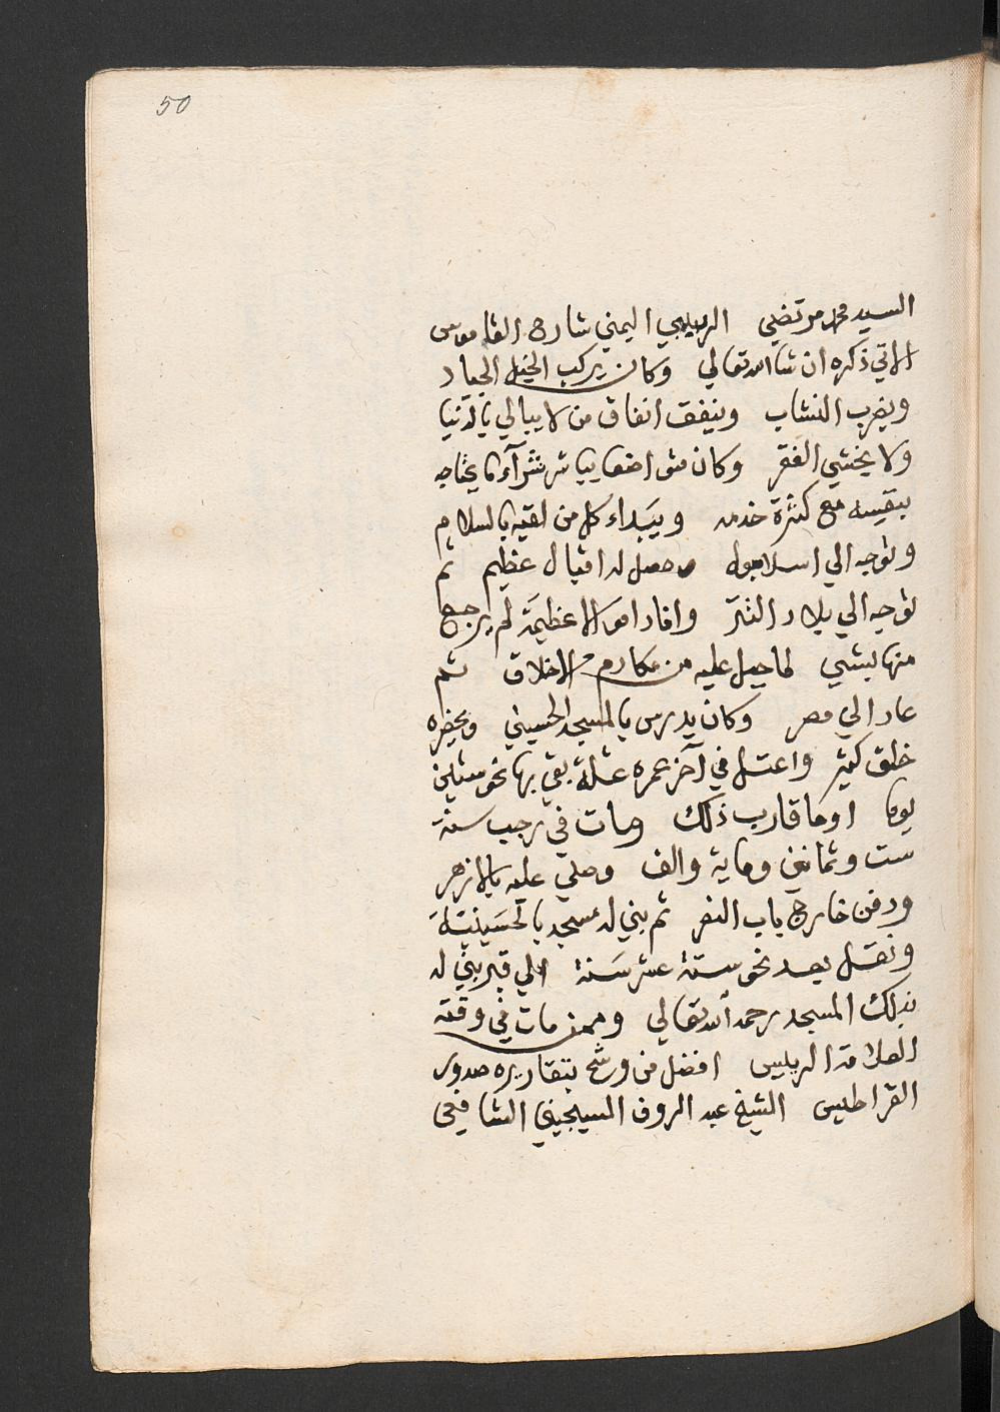 50
السيد محمد مرتضي الزبيدي اليمني شارح القاموس
الاتي ذكره ان شا الله تعالي وكان يركب الخيل الجياد
ويضرب النشاب وينفق انفاق من لا يبالي بالدنيا
ولا يخشي الفقر وكان متواضعا يباشر شرآء ما يحتاجه
بنفسه مع كثرة خدمه ويبداء كل من لقيه بالسلام
وتوجه الي اسلامبول وحصل له اقبال عظيم ثم
توجه الي بلاد التتر وافاد اموالا عظيمة لم يرجع
منها بشي لما جبل عليه من مكارم الاخلاق ثم
عاد الي مصر وكان يدرس بالمسجد الحسيني ويحضره
خلق كثير واعتل في آخر عمره علة بقي بها نحو ستين
يوما او ما قارب ذلك ومات في رجب سنة
ست وثمانين وماية والف وصلي عليه بالازهر
ودفن خارج باب النصر ثم بني له مسجد بالحسينية
ونقل بعد نحو ستة عشر سنة الي قبر بني له
بذلك المسجد رحمه الله تعالي وممن مات في وقته
العلامة الرييس افضل من وشح بتقاريره صدور
القراطيس الشيخ عبد الروف السجيني الشافعي